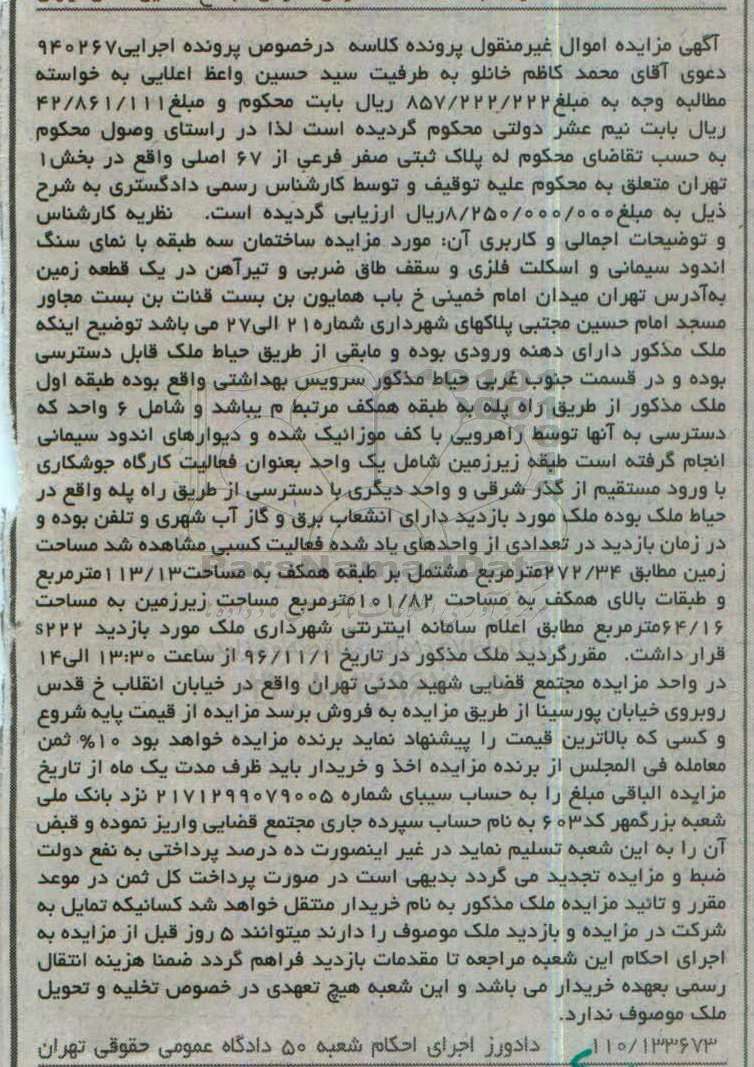 آگهی مزایده اموال غیرمنقول پرونده کلاسه درخصوص پرونده اجرایی۹۴۰۲۶۷
دعوی آقای محمد کاظم خانلو به طرفیت سید حسین واعظ اعلایی به خواسته
مطالبه وجه به مبلغ۸۵۷/۲۲۲/۲۲۲ ریال بابت محکوم و مبلغ۴۲/۸۶۱/۱۱۱
ریال بابت نیم عشر دولتی محکوم گردیده است لذا در راستای وصول محکوم
به حسب تقاضای محکوم له پلاک ثبتی صفر فرعی از ۶۷ اصلی واقع در بخش۱
تهران متعلق به محکوم علیه توقیف و توسط کارشناس رسمی دادگستری به شرح
ذیل به مبلغ۸/۲۵۰/۰۰۰/۰۰۰ریال ارزیابی گردیده است. نظریه کارشناس
و توضیحات اجمالی و کاربری آن: مورد مزایده ساختمان سه طبقه با نمای سنگ
اندود سیمانی و اسکلت فلزی و سقف طاق ضربی و تیرآهن در یک قطعه زمین
به‌آدرس تهران میدان امام خمینی خ باب همایون بن بست قنات بن بست مجاور
مسجد امام حسین مجتبی پلاکهای شهرداری شماره۲۱ الی۲۷ می باشد توضیح اینکه
ملک مذکور دارای دهنه ورودی بوده و مابقی از طریق حیاط ملک قابل دسترسی
بوده و در قسمت جنوب غربی حیاط مذکور سرویس بهداشتی واقع بوده طبقه اول
ملک مذکور از طریق راه پله به طبقه همکف مرتبط م یباشد و شامل ۶ واحد که
دسترسی به آنها توسط راهرویی با کف موزائیک شده و دیوارهای اندود سیمانی
انجام گرفته است طبقه زیرزمین شامل یک واحد بعنوان فعالیت کارگاه جوشکاری
با ورود مستقیم از گذر شرقی و واحد دیگری با دسترسی از طریق راه پله واقع در
حیاط ملک بوده ملک مورد بازدید دارای انشعاب برق و گاز آب شهری و تلفن بوده و
در زمان بازدید در تعدادی از واحدهای یاد شده فعالیت کسبی مشاهده شد مساحت
زمین مطابق ۲۷۲/۳۴مترمربع مشتمل بر طبقه همکف به مساحت۱۱۳/۱۳مترمربع
و طبقات بالای همکف به مساحت ۱۰۱/۸۲مترمربع مساحت زیرزمین به مساحت
۶۴/۱۶مترمربع مطابق اعلام سامانه اینترنتی شهرداری ملک مورد بازدید s۲۲۲
قرار داشت. مقررگردید ملک مذکور در تاریخ ۹۶/۱۱/۱ از ساعت ۱۳:۳۰ الی۱۴
در واحد مزایده مجتمع قضایی شهید مدنی تهران واقع در خیابان انقلاب خ قدس
روبروی خیابان پورسینا از طریق مزایده به فروش برسد مزایده از قیمت پایه شروع
و کسی که بالاترین قیمت را پیشنهاد نماید برنده مزایده خواهد بود ۱۰% ثمن
معامله فی المجلس از برنده مزایده اخذ و خریدار باید ظرف مدت یک ماه از تاریخ
مزایده الباقی مبلغ را به حساب سیبای شماره ۲۱۷۱۲۹۹۰۷۹۰۰۵ نزد بانک ملی
شعبه بزرگمهر کد۶۰۳ به نام حساب سپرده جاری مجتمع قضایی واریز نموده و قبض
آن را به این شعبه تسلیم نماید در غیر اینصورت ده درصد پرداختی به نفع دولت
ضبط و مزایده تجدید می گردد بدیهی است در صورت پرداخت کل ثمن در موعد
مقرر و تائید مزایده ملک مذکور به نام خریدار منتقل خواهد شد کسانیکه تمایل به
شرکت در مزایده و بازدید ملک موصوف را دارند میتوانند ۵ روز قبل از مزایده به
اجرای احکام این شعبه مراجعه تا مقدمات بازدید فراهم گردد ضمنا هزینه انتقال
رسمی بعهده خریدار می باشد و این شعبه هیچ تعهدی در خصوص تخلیه و تحویل
ملک موصوف ندارد.
۱۱۰/۱۳۳۶۷۳ دادورز اجرای احکام شعبه ۵۰ دادگاه عمومی حقوقی تهران